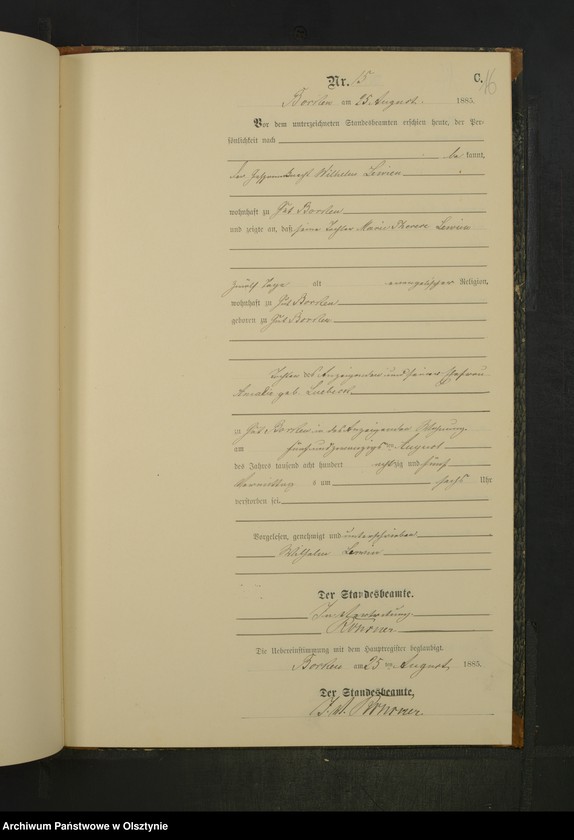 Nr. 15
C.
16
Borken am 25. August 1885.
Vor dem unterzeichneten Standesbeamten erschien heute, der Per-
sönlichkeit nach
be kannt,
der Wilhelm Lewien
wohnhaft zu Gut Borken
und zeigte an, daß seine Tochter Marie Therese Lewien
zwölf Tage alt evangelischer Religion,
wohnhaft zu Gut Borken
geboren zu Gut Borken
Tochter des Anzeigenden und seiner Ehefrau
Amalie geb.
zu Gut Borken in des Anzeigenden Wohnung
am fünfundzwanzigsten August
des Jahres tausend acht hundert achtzig und fünf
Vormittags um sechs Uhr
verstorben sei.
Vorgelesen, genehmigt und unterschrieben
Wilhelm Lewien
Der Standesbeamte.
In Vertretung
Die Uebereinstimmung mit dem Hauptregister beglaubigt.
Borken am 25 ten August 1885.
Der Standesbeamte,
Archiwum Państwowe w Olsztynie